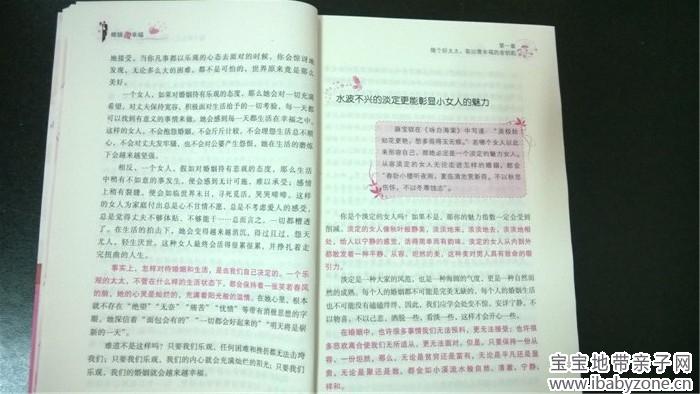 婚姻 幸福
她接受。当你凡事都以乐观的心态去面对的时候，你会惊讶地
发现，无论多么大的困难，都不是可怕的，世界原来竟是那么
美好。
一个女人，如果对婚姻持有乐观的态度，那么她会对一切充满
希望，对丈夫保持宽容，积极面对生活给予的一切考验，每一天都
可以找到有意义的事情来做。她会感到每一天都生活在幸福之中。
这样的女人，不会抱怨婚姻，不会斤斤计较，不会理怨生活总不顺
心，不会对丈夫发牢骚，也不会对公婆产生怨恨，她在生活的磨炼
下会越来越坚强。
相反，一个女人，假如对婚姻持有悲观的态度，那么生活
中稍有不如意的事发生，便会感到无计可施，难以承受；感情
上稍有裂缝，便会如临世界末日，寻死觅活，哭哭啼啼。这样
的女人为家庭付出总是心不甘情不愿，总是不考虑爱人的感受，
总是觉得丈夫不够体贴、不够能干……总而言之，一切都糟透
了。在生活的拍击下，她会变得越来越消沉，得过且过，怨天
尤人，轻生厌世。这种女人最终会活得很累很累，并挣扎着走
完扭曲的人生。
事实上，怎样对待婚姻和生活，是由我们自己决定的。一个乐
观的太太，不管在什么样的生活状态下，都会保持着一张笑若春风
的脸，她的心灵是灿烂的，充满着阳光般的温情。在她心里，根本
就不存在“绝望”“无奈”“痛苦”“忧愁”等带有消极思想的字
眼。她深信着“面包会有的”“一切都会好起来的”“明天将是崭
新的一天”。
难道不是这样吗？只要我们乐观，任何困难和挫折都无法击垮
我们；只要我们乐观，我们的内心就会充满灿烂的阳光；只要我们
乐观，我们的婚姻就会越来越幸福。
第一章
做个好太太，取出营幸福的金钥匙
水波不兴的淡定更能彰显小女人的魅力
薛宝钗在《咏白海棠》中写道：“淡极始
知花更艳，愁多焉得玉无痕。”若哪个女人以此
来形容自己，那她必定是一个淡定的魅力女人。
从容淡定的女人无论走进怎样的婚姻，都会
“春卧小楼听夜雨，夏临清池赏新荷，不以秋悲
伤怀，不以冬寒蚀志”。
你是个淡定的女人吗？如果不是，那你的魅力指数一定会受到
削减。淡定的女人像秋叶般静美，淡淡地来，淡淡地去，淡淡地相
处，给人以宁静的感觉，活得简单而有韵味。淡定的女人从内到外
都散发着一种平静、从容、坦然的美，这种美对男人具有致命的吸
引力。
淡定是一种大家的风范，也是一种海阔的气度，更是一种自然而
然的成熟。每个人的婚姻都不可能是完美无缺的，每个人的婚姻生活
也不可能没有磕磕绊绊。因此，我们应学会处变不惊，安详宁静，不
以物喜，不以己悲，洒脱一些，看淡一些，这样才会开心一些。
在婚姻中，也许很多事情我们无法预料，更无法接受；也许很
多悲欢离合使我们无所适从，更无法面对。但是，只要保持一份从
容，一份坦然，那么，无论是贫穷还是富有，无论是平凡还是显
贵，无论是聚还是散，都会如小溪流水般自然、清澈、宁静、
祥和。
宝宝地带亲子网
www.ibabyzone.cn